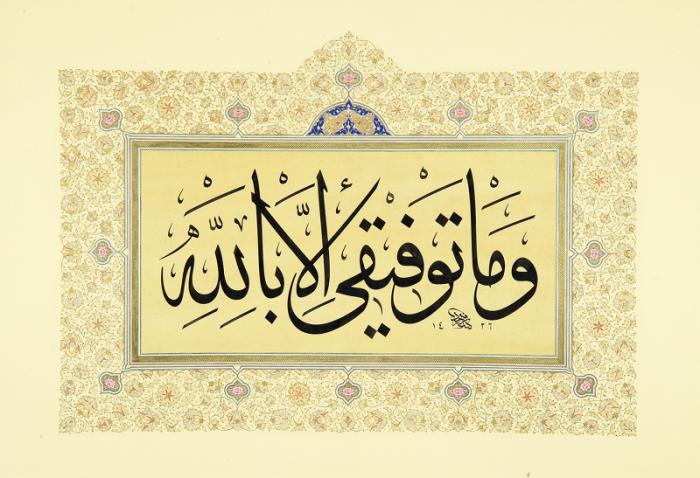 وَمَا تَوْفِيقِى إِلَّا بِاللَّهِ
١٤٢٦